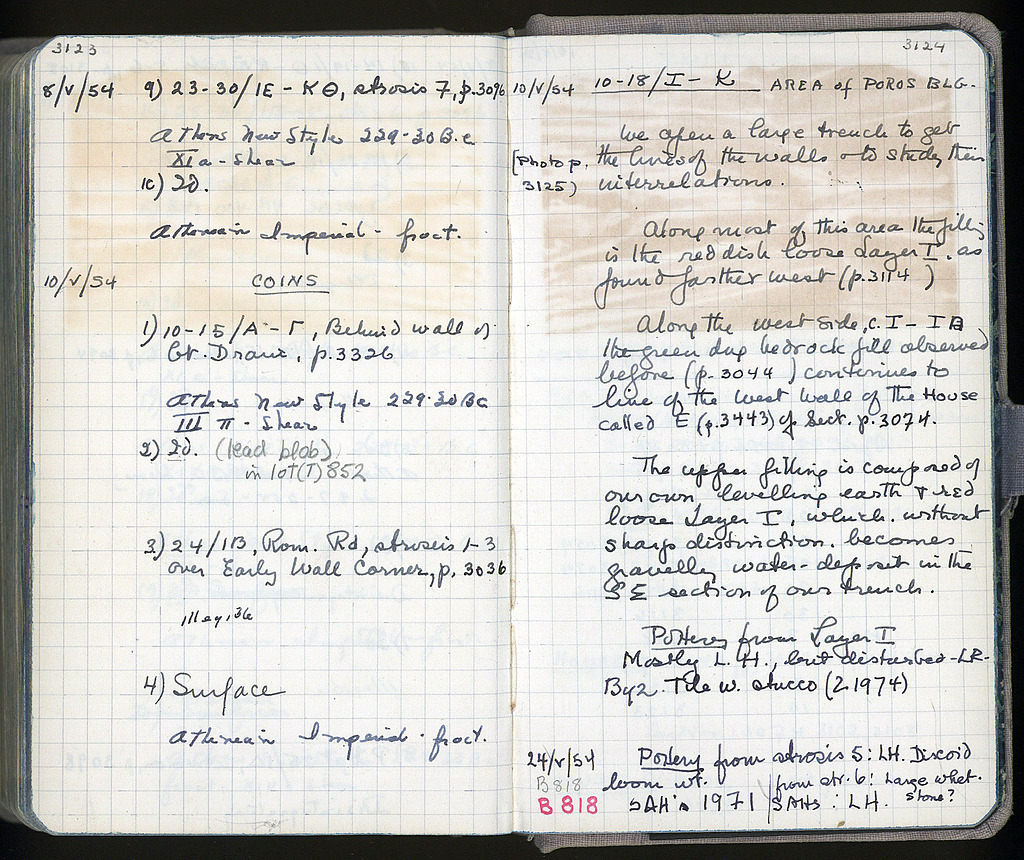 3123
8/V/54 9) 23-30/IE - KΘ, strosis 7, p.3096
Athens New Style 229-30 B.C
XI a - Shear
10) 20.
Athenian Imperial - fract.
10/V/54 COINS
1) 10-15/A - Γ, Behind wall of
Gt. Drain, p.3326
Athens New Style 229-30 BC
III π - Shear
2) 20. (lead blob)
in lot (T) 852
3) 24/IB, Rom. Rd, stroseis 1-3
over Early Wall Corner, p. 3036
illeg, 36
4) Surface
Athenian Imperial - fract.
3124
10/V/54 10-18/I - K AREA of POROS BLG.
We open a large trench to get
(Photo p. the lines of the walls & to study their
3125) interrelations.
Along most of this area the filling
is the reddish loose Layer I, as
found farther west (p.3114 )
Along the west side, c. I - IB
the green dug bedrock fill observed
before (p. 3044 ) continues to
line of the west wall of the House
called E (p.3443) of Sect. p. 3074.
The upper filling is composed of
our own levelling earth & red
loose Layer I, which, without
sharp distinction, becomes
gravelly water-deposit in the
SE section of our trench.
Pottery from Layer I
Mostly L.H., but disturbed - LR-
Byz. Tile w. stucco (2.1974)
24/V/54 Pottery from strosis 5: LH. Discoid
B 818 loom wt. from str. 6: Large whet-
B 818 SAH's 1971 SAHs : LH. stone?